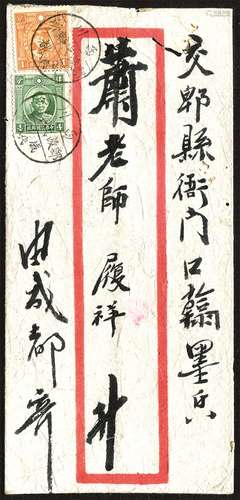 交郫縣衙門口翰墨
蕭老師履祥 升
由成都寄